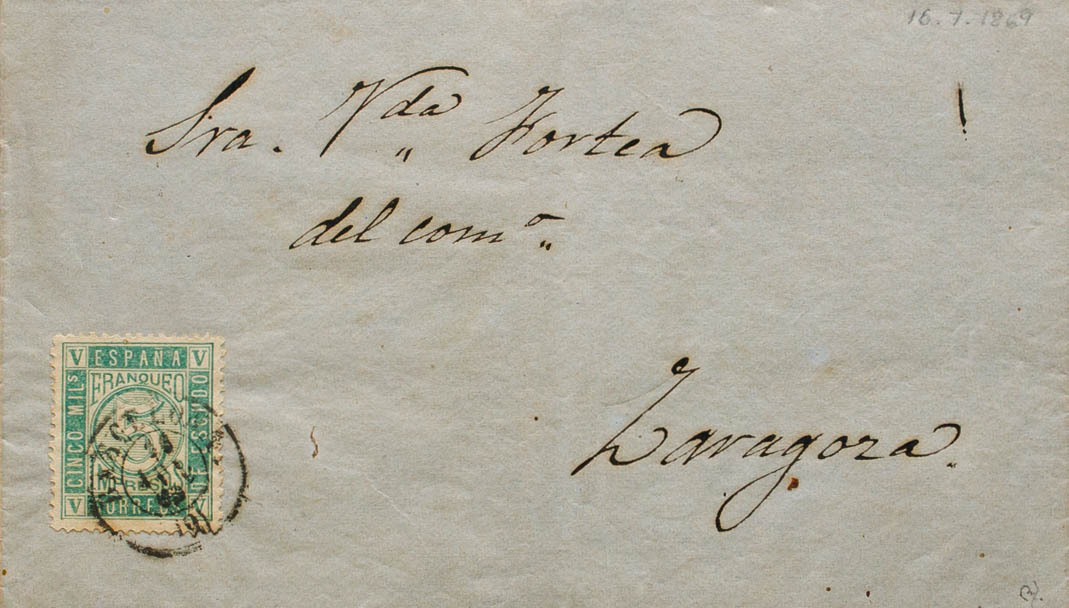 16.7.1869
Sra. Vda Fortea
del como
Zaragoza.
V ESPAÑA V
FRANQUEO
CINCO MILS
5
DE ESCUDO
IMPRESOS
V CORREOS V